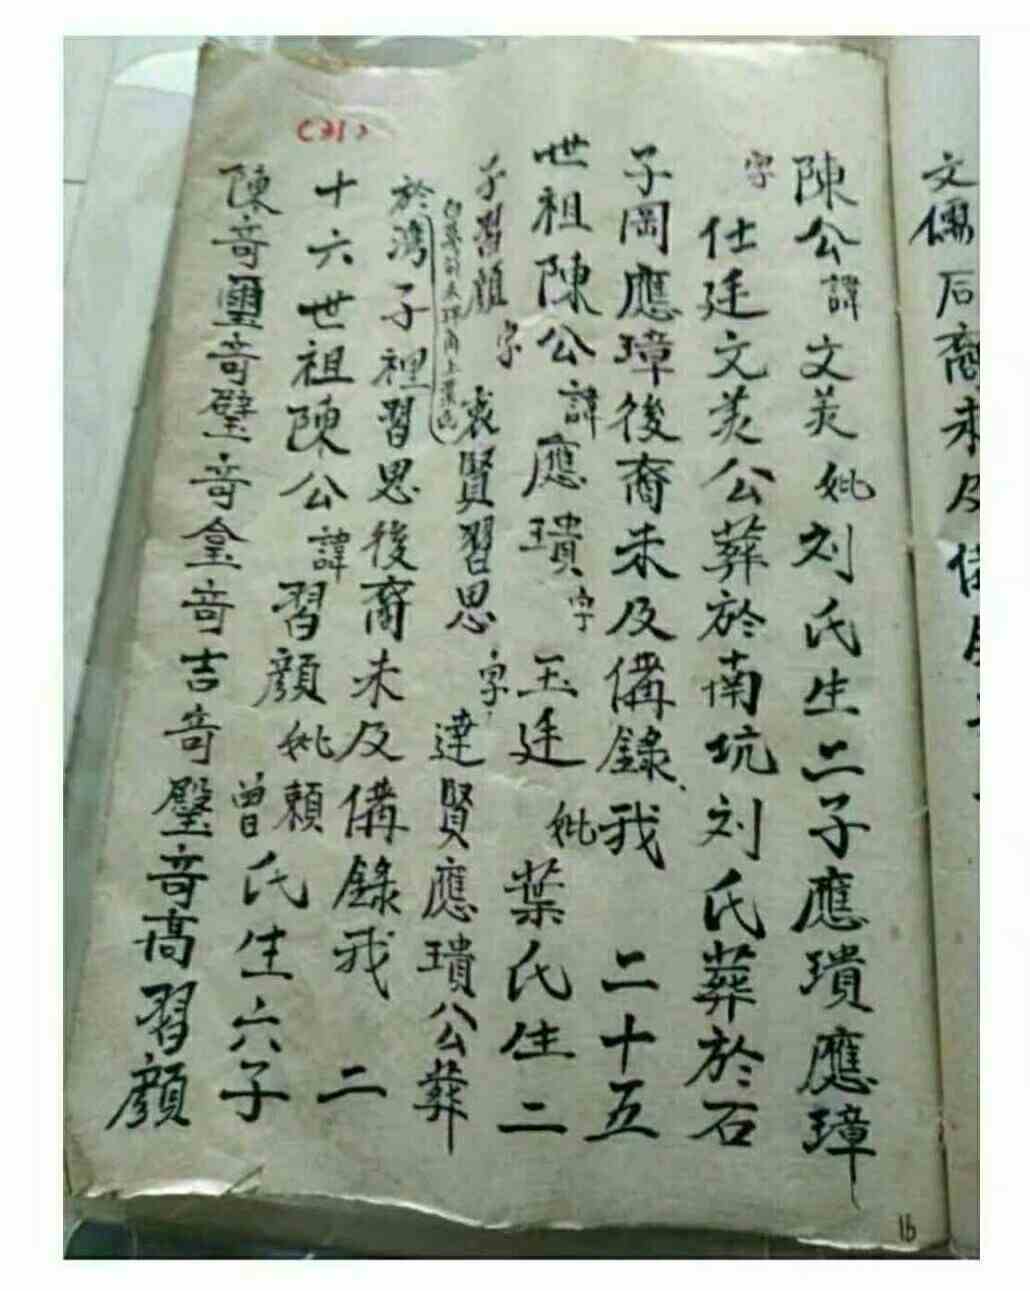 文儒后裔未及俻
陳公諱文美妣刘氏生二子應璝應璋
字仕廷文美公葬於南坑刘氏葬於石
子岡應璋後裔未及俻錄我二十五
世祖陳公諱應璝字玉廷妣葉氏生二
子習顔字衷賢習思字達賢應璝公葬
於灣子裡習思後裔未及俻錄我二
十六世祖陳公諱習顔妣頼曾氏生六子
陳竒璽竒璧竒竒吉竒竒髙習顔
(31)
16